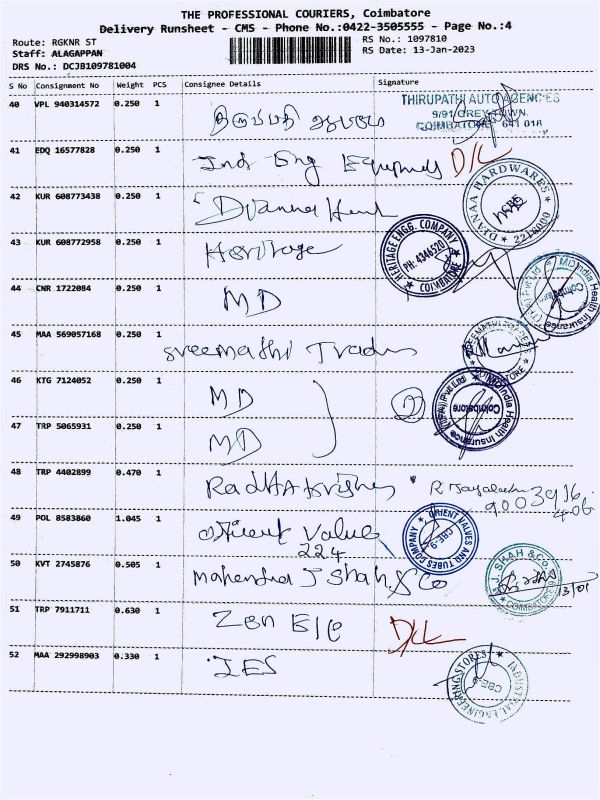 THE PROFESSIONAL COURIERS, Coimbatore
Delivery Runsheet - CMS - Phone No.:0422-3505555 - Page No.:4
Route: RGKNR ST
RS No.: 1097810
Staff: ALAGAPPAN
RS Date: 13-Jan-2023
DRS No.: DCJB109781004
S No Consignment No Weight PCS Consignee Details Signature
40 VPL 940314572 0.250 1 திருப்பதி
THIRUPATHI AUTO AGENCIES
9/91 GREY TOWN
COIMBATORE - 641 018
41 EDQ 16577828 0.250 1 Ind Eng Equpmes D/L
42 KUR 608773438 0.250 1 Dyanna
DYANAA HARDWARES
43 KUR 608772958 0.250 1 Heritage
HERITAGE ENGG. COMPANY
PH: 4346520
COIMBATORE
44 CNR 1722084 0.250 1 MD
MDIndia Health Insurance
Coimbatore
45 MAA 569057168 0.250 1 Sreemathi Traders
46 KTG 7124052 0.250 1 MD
MDIndia Health Insurance TPA Pvt Ltd
Coimbatore
47 TRP 5065931 0.250 1 MD
48 TRP 4402899 0.470 1 Radhakrishna
49 POL 8583860 1.045 1 Orient Value
224
ORIENT VALVES AND TUBES COMPANY
CBE-9
50 KVT 2745876 0.505 1 Mahendra J Shah & Co
J. SHAH & Co.
COIMBATORE
13/01
51 TRP 7911711 0.630 1 Zen Ele D/L
52 MAA 292998903 0.330 1 IES
INDUSTRIAL ENGINEERING STORES
CBE-9